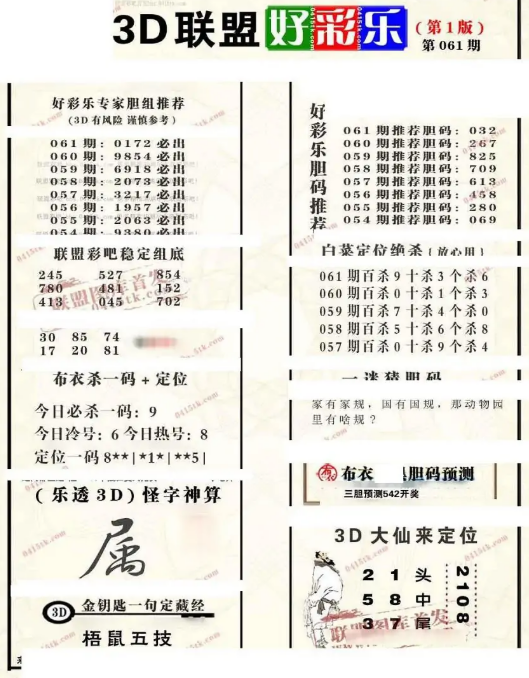 3D联盟好彩乐
(第1版)
第061期
好彩乐专家胆组推荐
(3D有风险 谨慎参考)
061期: 0172必出
060期: 9854必出
059期: 6918必出
058期: 2073必出
057期: 3217必出
056期: 1957必出
055期: 2063必出
054期: 9380必出
联盟彩吧稳定组底
245 527 854
780 481 152
413 045 702
30 85 74
17 20 81
布衣杀一码+定位
今日必杀一码: 9
今日冷号: 6 今日热号: 8
定位一码 8**|*1*|**5|
(乐透3D)怪字神算
属
3D 金钥匙一句定藏经
梧鼠五技
好彩乐胆码推荐
061期推荐胆码: 032
060期推荐胆码: 267
059期推荐胆码: 825
058期推荐胆码: 709
057期推荐胆码: 613
056期推荐胆码: 458
055期推荐胆码: 280
054期推荐胆码: 069
白菜定位绝杀(放心用)
061期百杀9十杀3个杀6
060期百杀0十杀1个杀3
059期百杀7十杀4个杀0
058期百杀5十杀6个杀8
057期百杀0十杀9个杀4
一谜猜胆码
家有家规，国有国规，那动物园
里有啥规？
布衣 胆码预测
三胆预测542开奖
3D大仙来定位
2 1 头
5 8 中
3 7 尾
2108
0415tk.com